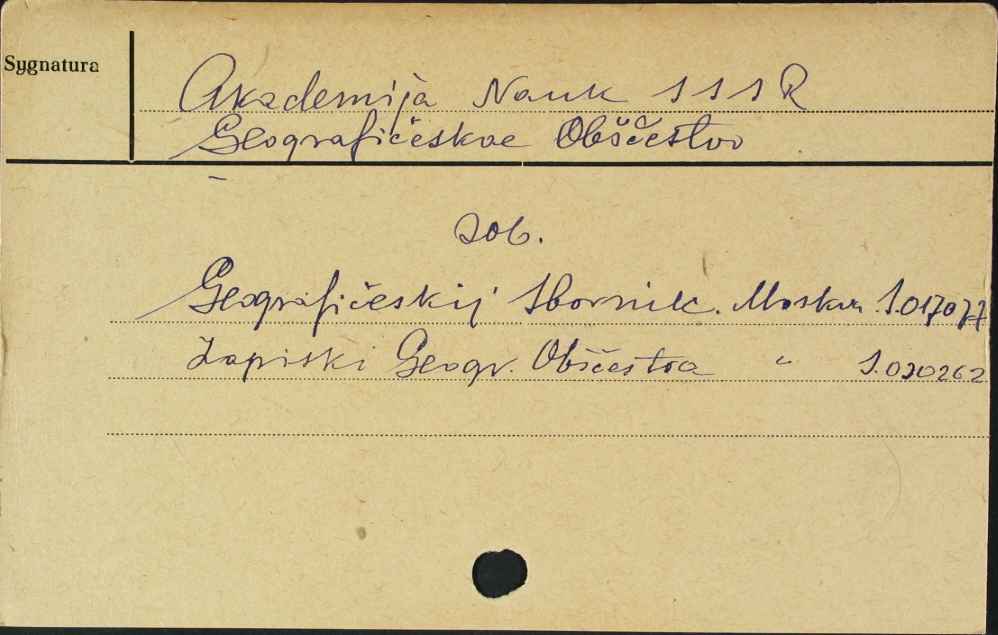 Sygnatura
Akademija Nauk SSSR
Geografičeskoe Obščestvo
zob.
Geografičeskij Sbornik. Moskva S.017077
Zapiski Geogr. Obščestva " S.020262